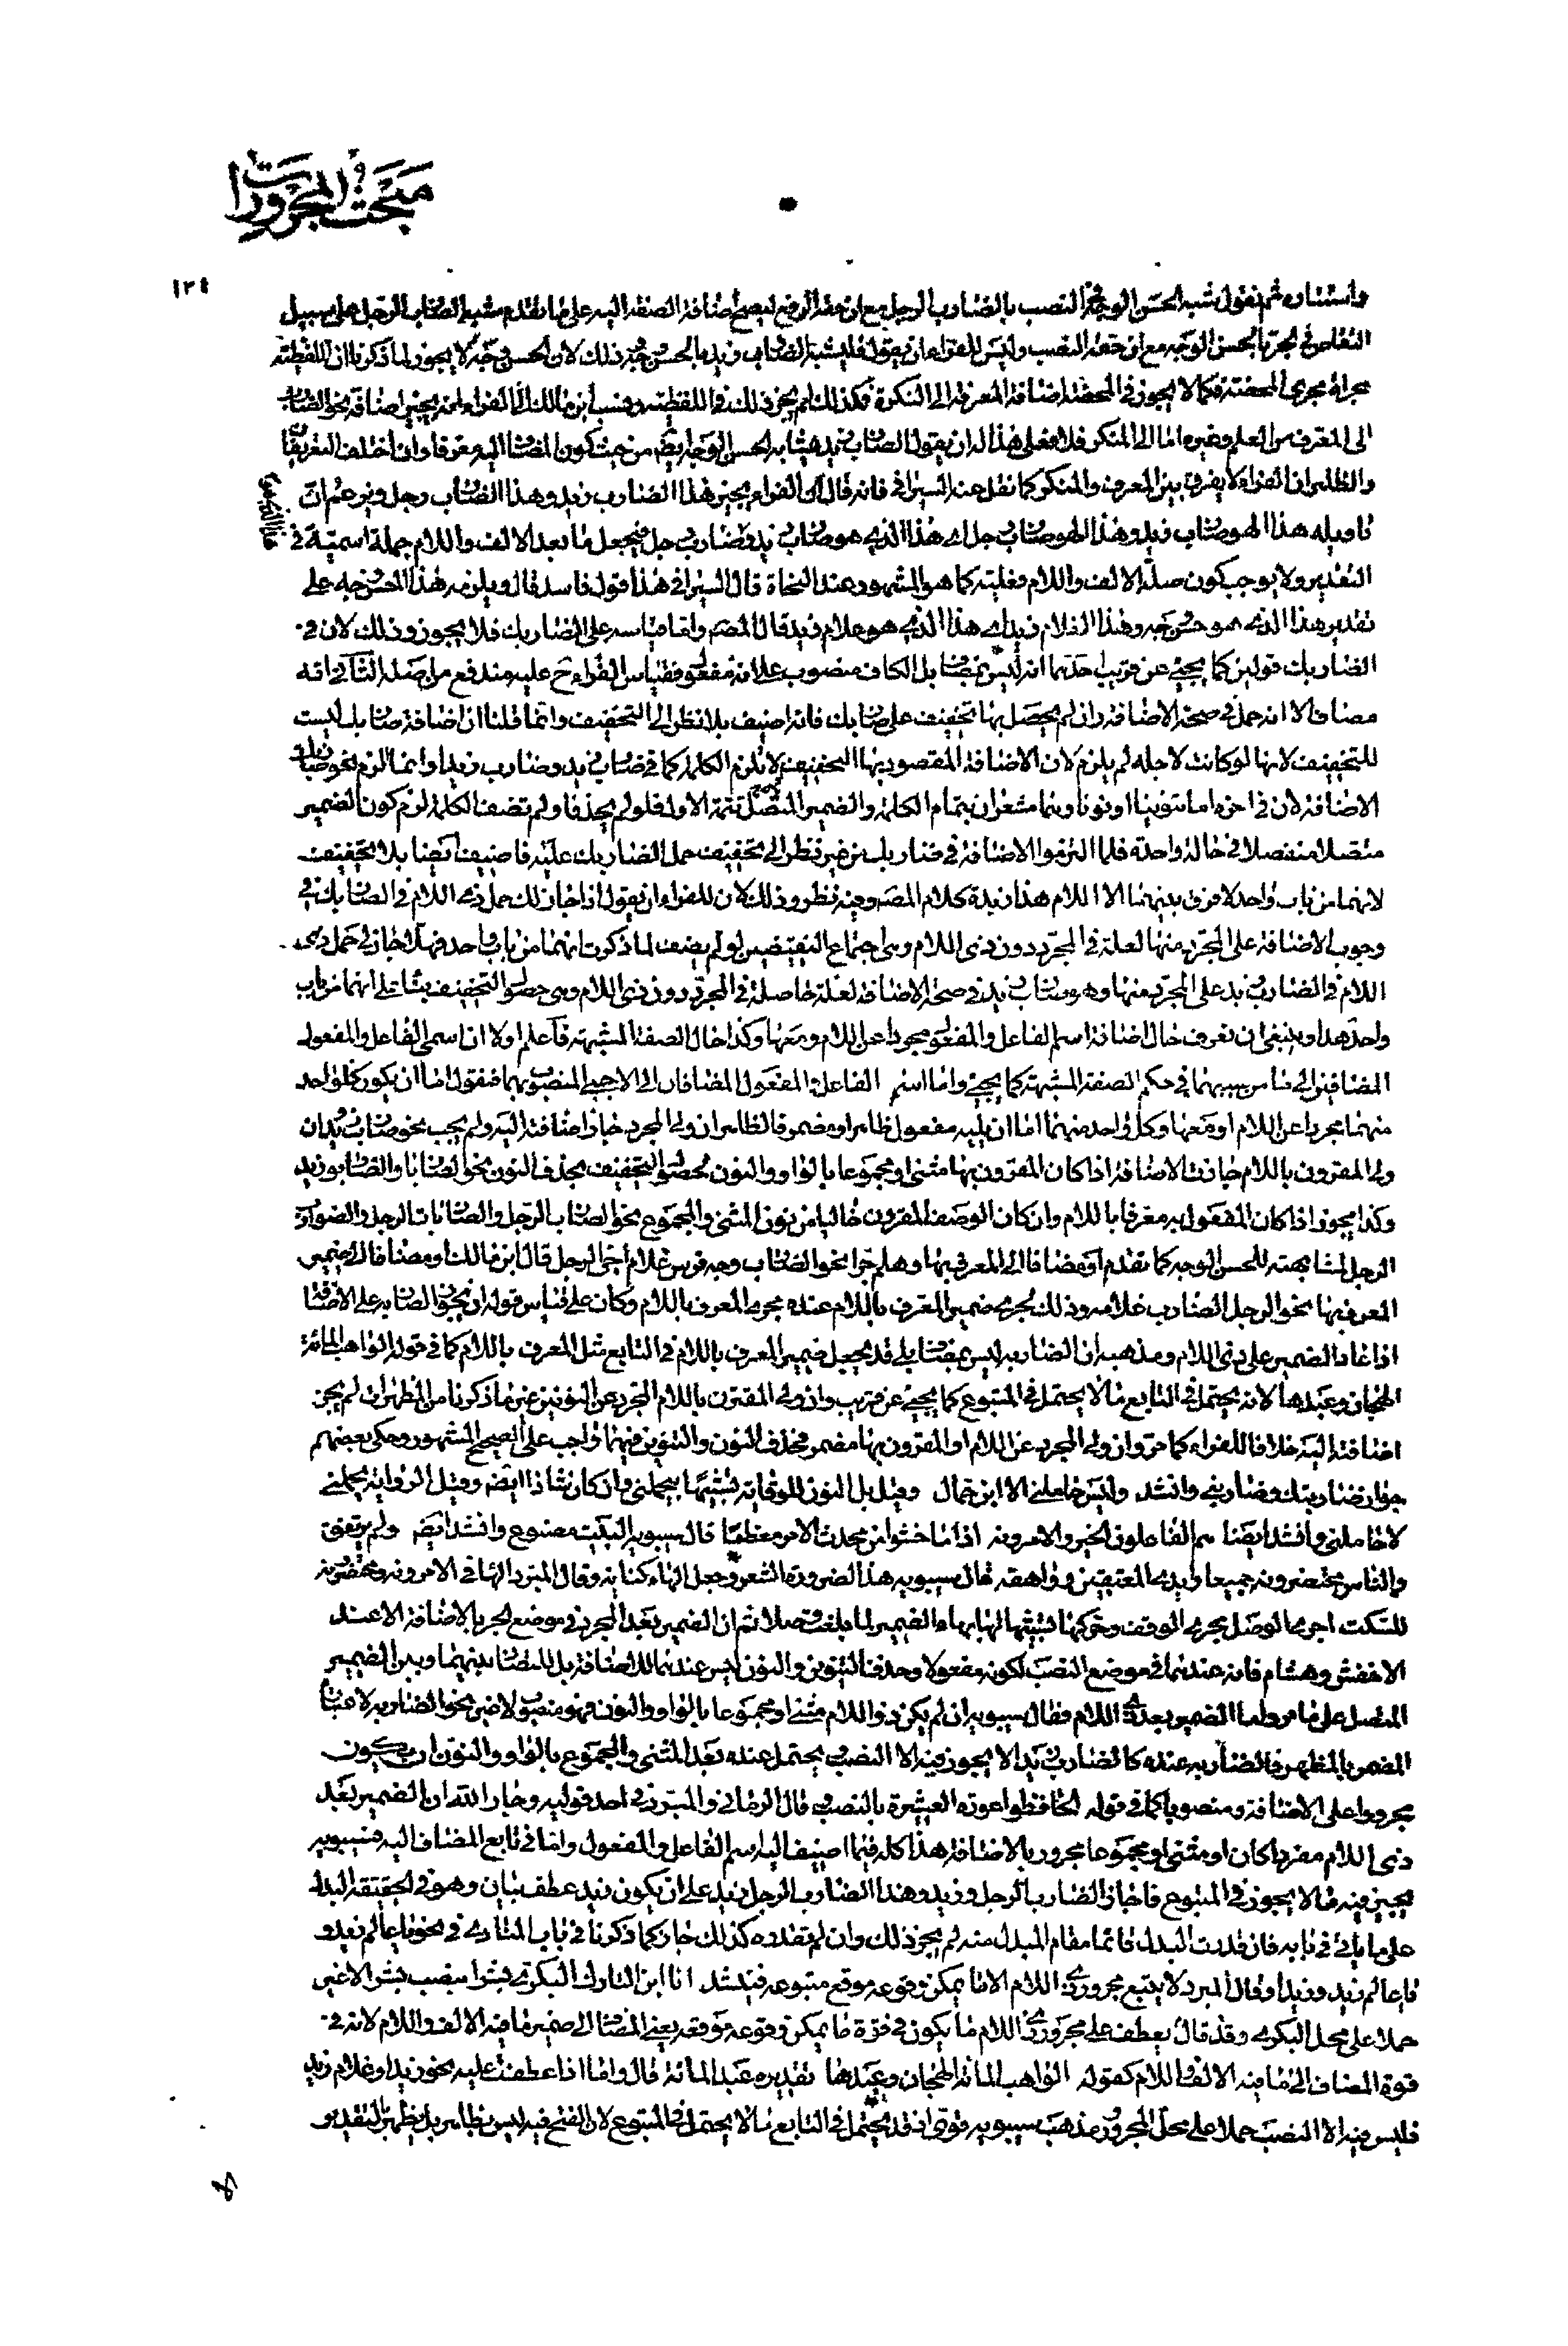 مبحث في المجرورات
١٢٤
واستناره ثم نقول شبه الحسن الوجه في النصب بالضارب الرجل مع ان حقه الرفع ليصح اضافة الصفة اليه على ما تقدم شبه الضارب الرجل على سبيل
التقاص في الجر بالحسن الوجه مع ان حقه النصب وليس للفراء ان يقول فليشبه الضارب زيد بالحسن وجه وذلك لان الحسن وجه لا يجوز لما ذكرنا ان اللفظية
مجراة مجرى المحضة فكما لا يجوز في المحضة اضافة المعرفة الى النكرة فكذلك لم يجز ذلك في اللفظية ونسب ابن مالك الى الفراء انه يجيز اضافة نحو الضارب
الى المعرف من العلم وغيره اما الى المنكر فلا فعلى هذا له ان يقول الضارب زيد مشابه للحسن الوجه ايضا من حيث كون المضاف اليه معرفا وان اختلف التعريفان
والظاهر ان الفراء لا يفرق بين المعرف والمنكر كما نقل عنه السيرافي فانه قال ان الفراء يجيز هذا الضارب زيد وهذا الضارب رجل ويزعم ان
تاويله هذا الهو ضارب زيد وهذا الهو ضارب رجل اى هذا الذي هو ضارب زيد وضارب رجل فيجعل ما بعد الالف واللام جملة اسمية في
التقدير ولا يوجب كون صلة الالف واللام فعلية كما هو المشهور عند النحاة قال السيرافي هذا قول فاسد قال ويلزمه هذا الحسن وجه على
تقدير هذا الذي هو حسن وجه وهذا الغلام زيد اى هذا الذي هو غلام زيد قال المصه واما قياسه على الضاربك فلا يجوز وذلك لان في
الضاربك قولين كما يجيء عن قريب احدهما انه ليس بمضاف بل الكاف منصوب على انه مفعول فقياس الفراء ح عليه مندفع من اصله الثاني انه
مضاف الا انه حمل في صحة الاضافة وان لم يحصل بها تخفيف على ضاربك فانه اضيف بلا نظر الى التخفيف وانما قلنا ان اضافة ضاربك ليست
للتخفيف لانها لو كانت لاجله لم يلزم لان الاضافة المقصود بها التخفيف لا تلزم الكلم كما في ضارب زيد وضارب زيدا وانما الزم نحو ضاربك
الاضافة لان في اخره اما تنوينا او نونا وهما مشعران بتمام الكلمة والضمير المتصل تتمة الاول فلو لم يحذفا ولم تضف الكلمة لزم كون الضمير
متصلا منفصلا في حالة واحدة فلما التزموا الاضافة في ضاربك من غير نظر الى تخفيف حمل الضاربك عليه فاضيف ايضا بلا تخفيف
لانهما من باب واحد لا فرق بينهما الا اللام هذا زبدة كلام المصه وفيه نظر وذلك لان للفراء ان يقول اذا جاز لك حمل ذي اللام في الضاربك في
وجوب الاضافة على المجرد منها لعلة في المجرد دون ذي اللام وهي اجتماع النقيضين لو لم يضف لما ذكرت انهما من باب واحد فهلا جاز لي حمل ذي
اللام في الضارب زيد على المجرد منها وهو ضارب زيد في صحة الاضافة لعلة حاصلة في المجرد دون ذي اللام وهي حصول التخفيف بناء على انهما من باب
واحد هذا وينبغي ان نعرف حال اضافة اسم الفاعل والمفعول مجردا عن اللام ومعها وكذا حال الصفة المشبهة فاعلم اولا ان اسمي الفاعل والمفعول
المضافين الى ما من سببهما في حكم الصفة المشبهة كما يجيء واما اسم الفاعل والمفعول المضافان الى الاجنبي المنصوب بهما فنقول اما ان يكون كل واحد
منهما مجردا عن اللام او معها وكل واحد منهما اما ان يليه مفعول ظاهر او مضمر فالظاهر ان ولي المجرد جاز اضافته اليه ولم يجب نحو ضارب زيد وان
ولى المقرون باللام جازت الاضافة اذا كان المقرون بها مثنى او مجموعا بالواو والنون لحصول التخفيف بحذف النون نحو الضاربا والضاربو زيد
وكذا يجوز اذا كان المفعول به معرفا باللام وان كان الوصف المقرون خاليا من نون المثنى والمجموع نحو الضارب الرجل والضاربات الرجل والضوارب
الرجل لمشابهته للحسن الوجه كما تقدم او مضافا الى المعرف بها وهلم جرا نحو الضارب وجه فرس غلام اخي الرجل قال ابن مالك او مضافا الى ضمير
المعرف بها نحو الرجل الضارب غلامه وذلك لجري ضمير المعرف باللام عنده مجرى المعرف باللام وكان على قياس قوله ان يجوز الضاربه على الاضافة
اذا عاد الضمير على ذي اللام ومذهبه ان الضاربه ليس بمضاف بلى قد يجعل ضمير المعرف باللام في التابع مثل المعرف باللام كما في قوله الواهب المائة
الهجان وعبدها لانه يحتمل في التابع ما لا يحتمل في المتبوع كما يجيء عن قريب وان ولى المقترن باللام المجرد عن النونين غير ما ذكرنا من الظهرات لم يجز
اضافته اليه خلافا للفراء كما مر وان ولى المجرد عن اللام او المقرون بها مضمر فحذف النون والتنوين فيهما واجب على الصحيح المشهور وحكى بعضهم
جواز ضاربنك وضاربني وانشد وليس حاملني الا ابن حمال وقيل بل النون للوقاية تشبيها بيحملني وان كان شاذا ايضه وقيل الرواية يحملني
لا حاملني وانشد ايضا هم الفاعلون الخير والامرونه اذا ما خشوا من محدث الامر معظما قال سيبويه البيت مصنوع وانشد ايضه ولم يرتفق
والناس محتضرونه جميعا وايدي المعتفين رواهقه قال سيبويه هذا الضرورة الشعر وجعل الهاء كناية وقال المبرد الهاء في الامرونه ومحتضرونه
للسكت اجري الوصل مجرى الوقف وحركها تشبيها لها بهاء الضمير لما بلغت وصلا ثم ان الضمير بعد المجرد في موضع الجر بالاضافة الا عند
الاخفش وهشام فانه عندهما في موضع النصب لكونه مفعولا وحذف التنوين والنون ليس عندهما للاضافة بل للتضاد بينهما وبين الضمير
المتصل على ما مر واما الضمير بعد ذي اللام فقال سيبويه ان لم يكن ذو اللام مثنى او مجموعا بالواو والنون فهو منصوب لا غير نحو الضاربه لاعتبار
المضمر بالمظهر فالضاربه عنده كالضارب زيدا لا يجوز فيه الا النصب ويحتمل عنده بعد المثنى والمجموع بالواو والنون ان يكون
مجرورا على الاضافة ومنصوبا كما في قوله الحافظوا عورة العشيرة بالنصب وقال الرماني والمبرد في احد قوليه وجار الله ان الضمير بعد
ذي اللام مفردا كان او مثنى او مجموعا مجرور بالاضافة هذا كله فيما اضيف اليه اسم الفاعل والمفعول واما في تابع المضاف اليه فسيبويه
يجيز فيه ما لا يجوز في المتبوع فاجاز الضارب الرجل وزيد وهذا الضارب الرجل زيد على ان يكون زيد عطف بيان وهو في الحقيقة البدل
على ما ياتي في بابه فان قدرت البدل قائما مقام المبدل منه لم يجز ذلك وان لم تقدره كذلك جاز كما ذكرنا في باب المنادى في نحو يا عالم زيد و
يا عالم زيد وزيدا وقال المبرد لا يتبع مجرور ذي اللام الا ما يمكن وقوعه موقع متبوعه فينشد انا ابن التارك البكري بشرا بنصب بشرا لا غير
حملا على محل البكري وقد قال يعطف على مجرور ذي اللام ما يكون في قوة ما يمكن وقوعه موقعه يعني المضاف الى ضمير ما فيه الالف واللام لانه في
قوة المضاف الى ما فيه الالف واللام كقوله الواهب المائة الهجان وعبدها تقديره عبد المائة قال واما اذا عطفت عليه نحو زيد او غلام زيد
فليس فيه الا النصب حملا على محل المجرور ومذهب سيبويه قوي اذ قد يحتمل في التابع ما لا يحتمل في المتبوع لان القبح فيه ليس بظاهر بل يظهر بالتقدير و